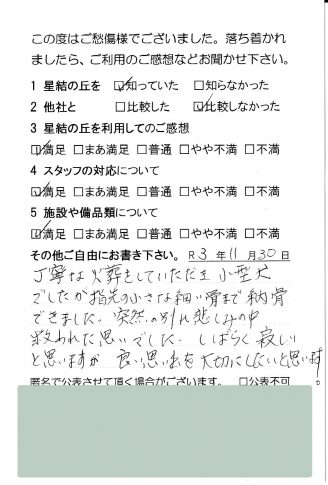 この度はご愁傷様でございました。落ち着かれ
ましたら、ご利用のご感想などお聞かせ下さい。
1 星結の丘を ☑知っていた □知らなかった
2 他社と □比較した ☑比較しなかった
3 星結の丘を利用してのご感想
☑満足 □まあ満足 □普通 □やや不満 □不満
4 スタッフの対応について
☑満足 □まあ満足 □普通 □やや不満 □不満
5 施設や備品類について
☑満足 □まあ満足 □普通 □やや不満 □不満
その他ご自由にお書き下さい。R3年11月30日
丁寧な火葬をしていただき 小型犬
でしたが指先の小さな細い骨まで納骨
できました。突然の別れ悲しみの中
救われた思いでした。しばらく寂しい
と思いますが 良い思い出を大切にしたいと思います。
匿名で公表させて頂く場合がございます。 □公表不可